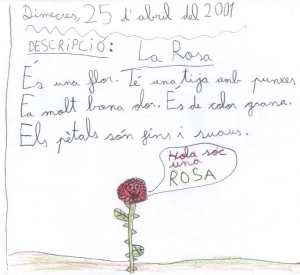 Dimecres, 25 d'abril del 2001
DESCRIPCIÓ: La Rosa
És una flor. Té una tija amb punxes
Fa molt bona olor. És de color grana.
Els pètals són fins i suaus.
Hola sóc
una
ROSA